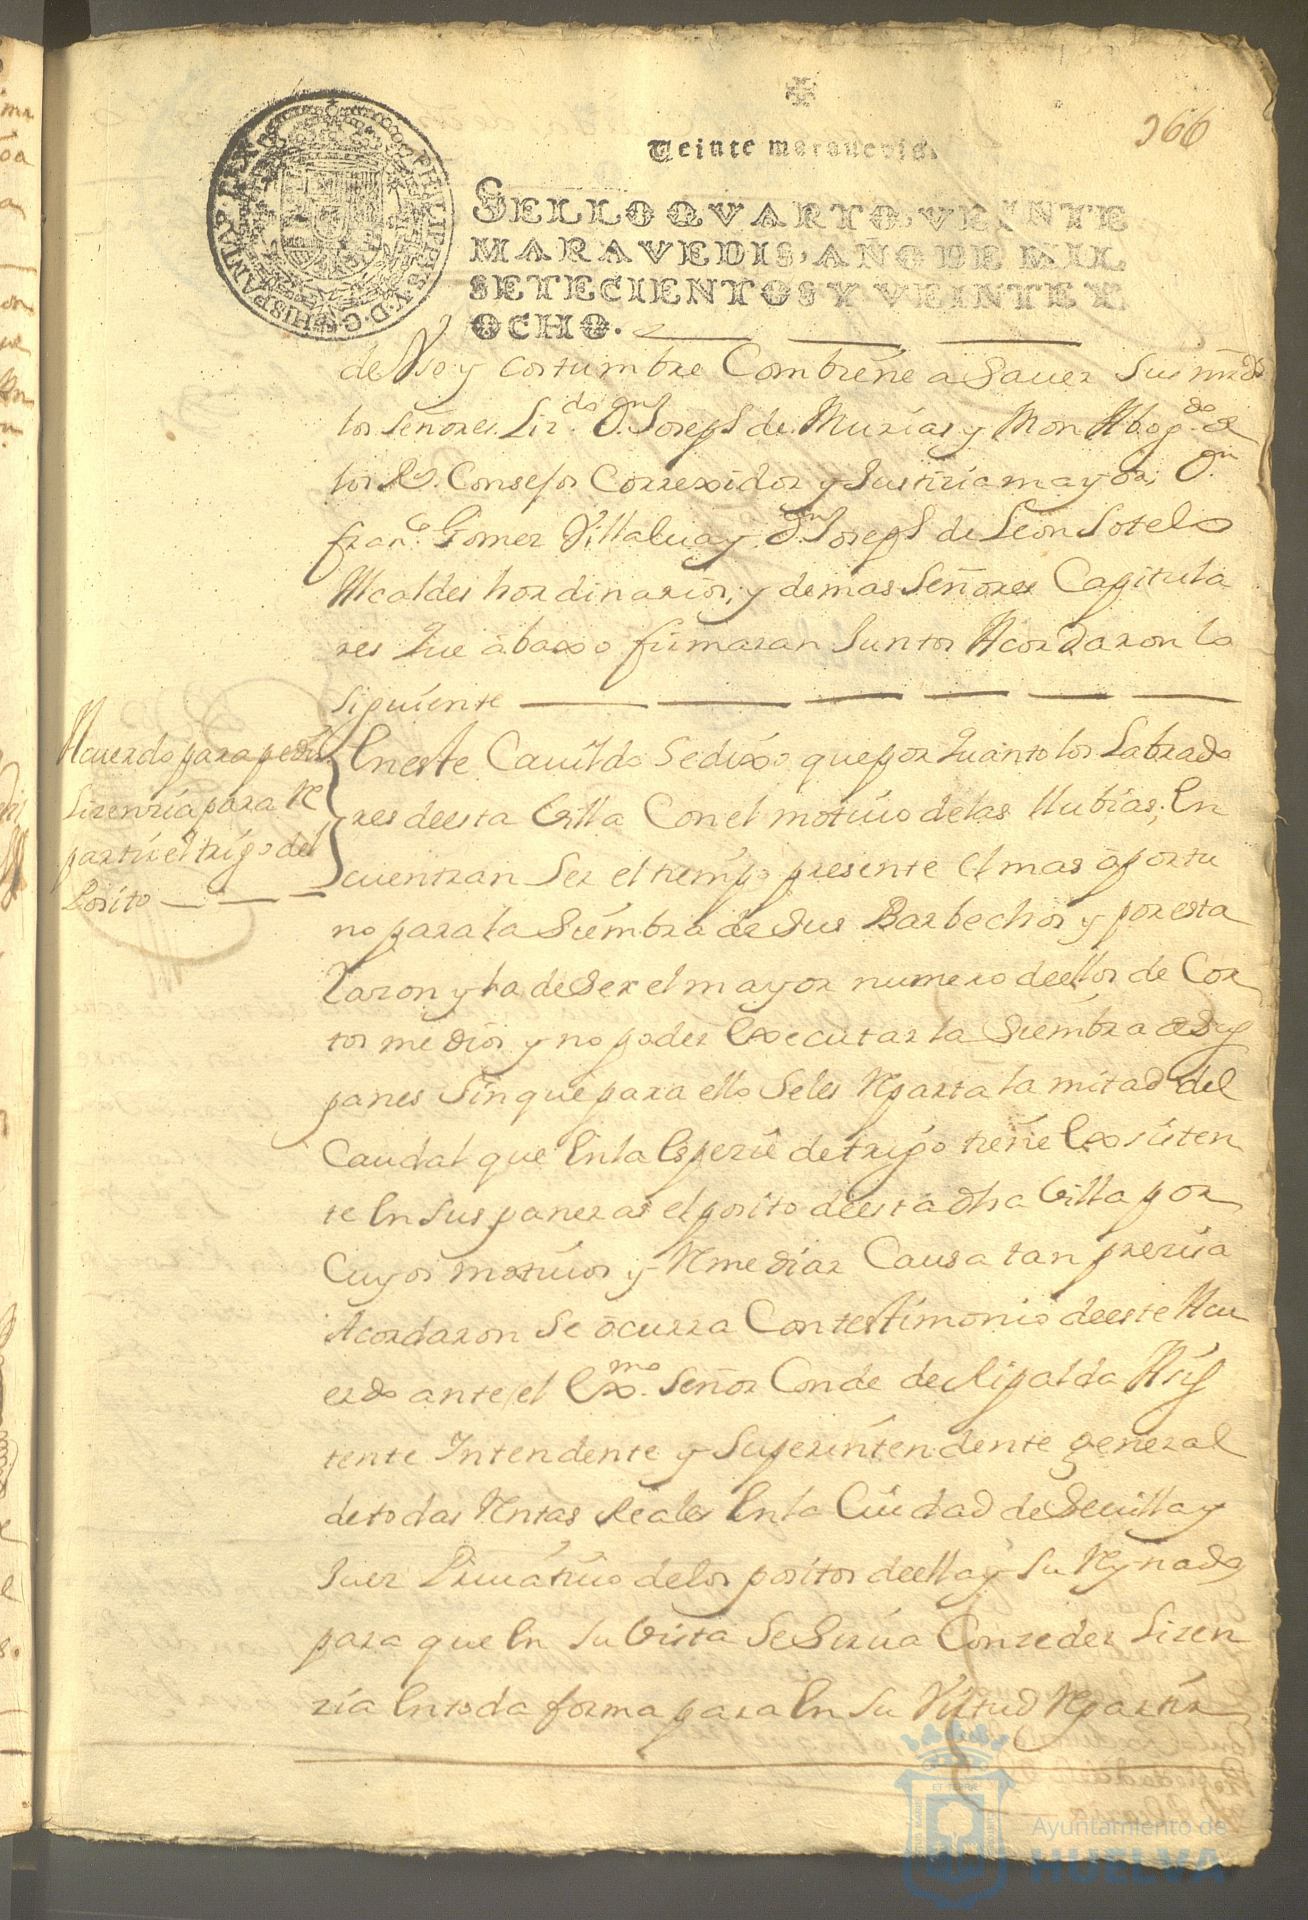 366
Veinte maravedis.
SELLO QVARTO, VEINTE
MARAVEDIS, AÑO DE MIL
SETECIENTOS Y VEINTE Y
OCHO.
PHILIPPUS V D G HISPANIAR REX
de Vso y costumbre Combiene a Sauer Sus mrds
los señores Lizdo Dn Joseph de Murias y Mon Abogdo de
los Rs. Consejos Correxidor y Justizia mayor, Dn
Franco Gomez Villalua y Dn Joseph de Leon Sotelo
Alcaldes hordinarios, y demas Señores Capitula
res Que abaxo firmaran Juntos Acordaron lo
siguiente
Acuerdo para pedir
Lizenzia para Re
partir el trigo del
Posito
En este Cauildo Se dixo que por Quanto los Labrado
res deesta Villa Con el motiuo de las llubias, En
cuentran Ser el tiempo presente el mas oportu
no para la Siembra de Sus Barbechos y por esta
Razon y ha de Ser el mayor numero deellos de Cor
tos medios y no poder Executar la Siembra de Sus
panes Sin que para ello Se les Reparta la mitad del
Caudal que En la Espezie de trigo tiene Existen
te En Sus paneras el posito deesta dha Villa por
Cuyos motiuos y Remediar Causa tan prezisa
Acordaron Se ocurra Con testimonio deeste Acu
erdo ante el Exmo. Señor Conde de Ripalda Asis
tente Intendente y Superintendente general
de todas Rentas Reales En la Ciudad de Seuilla y
Juez Priuatiuo de los positos deella y Su Reynado
para que En Su Vista Se Sirua Conzeder Lizen
zia En toda forma para En Su Virtud Repartir
Ayuntamiento de
HUELVA